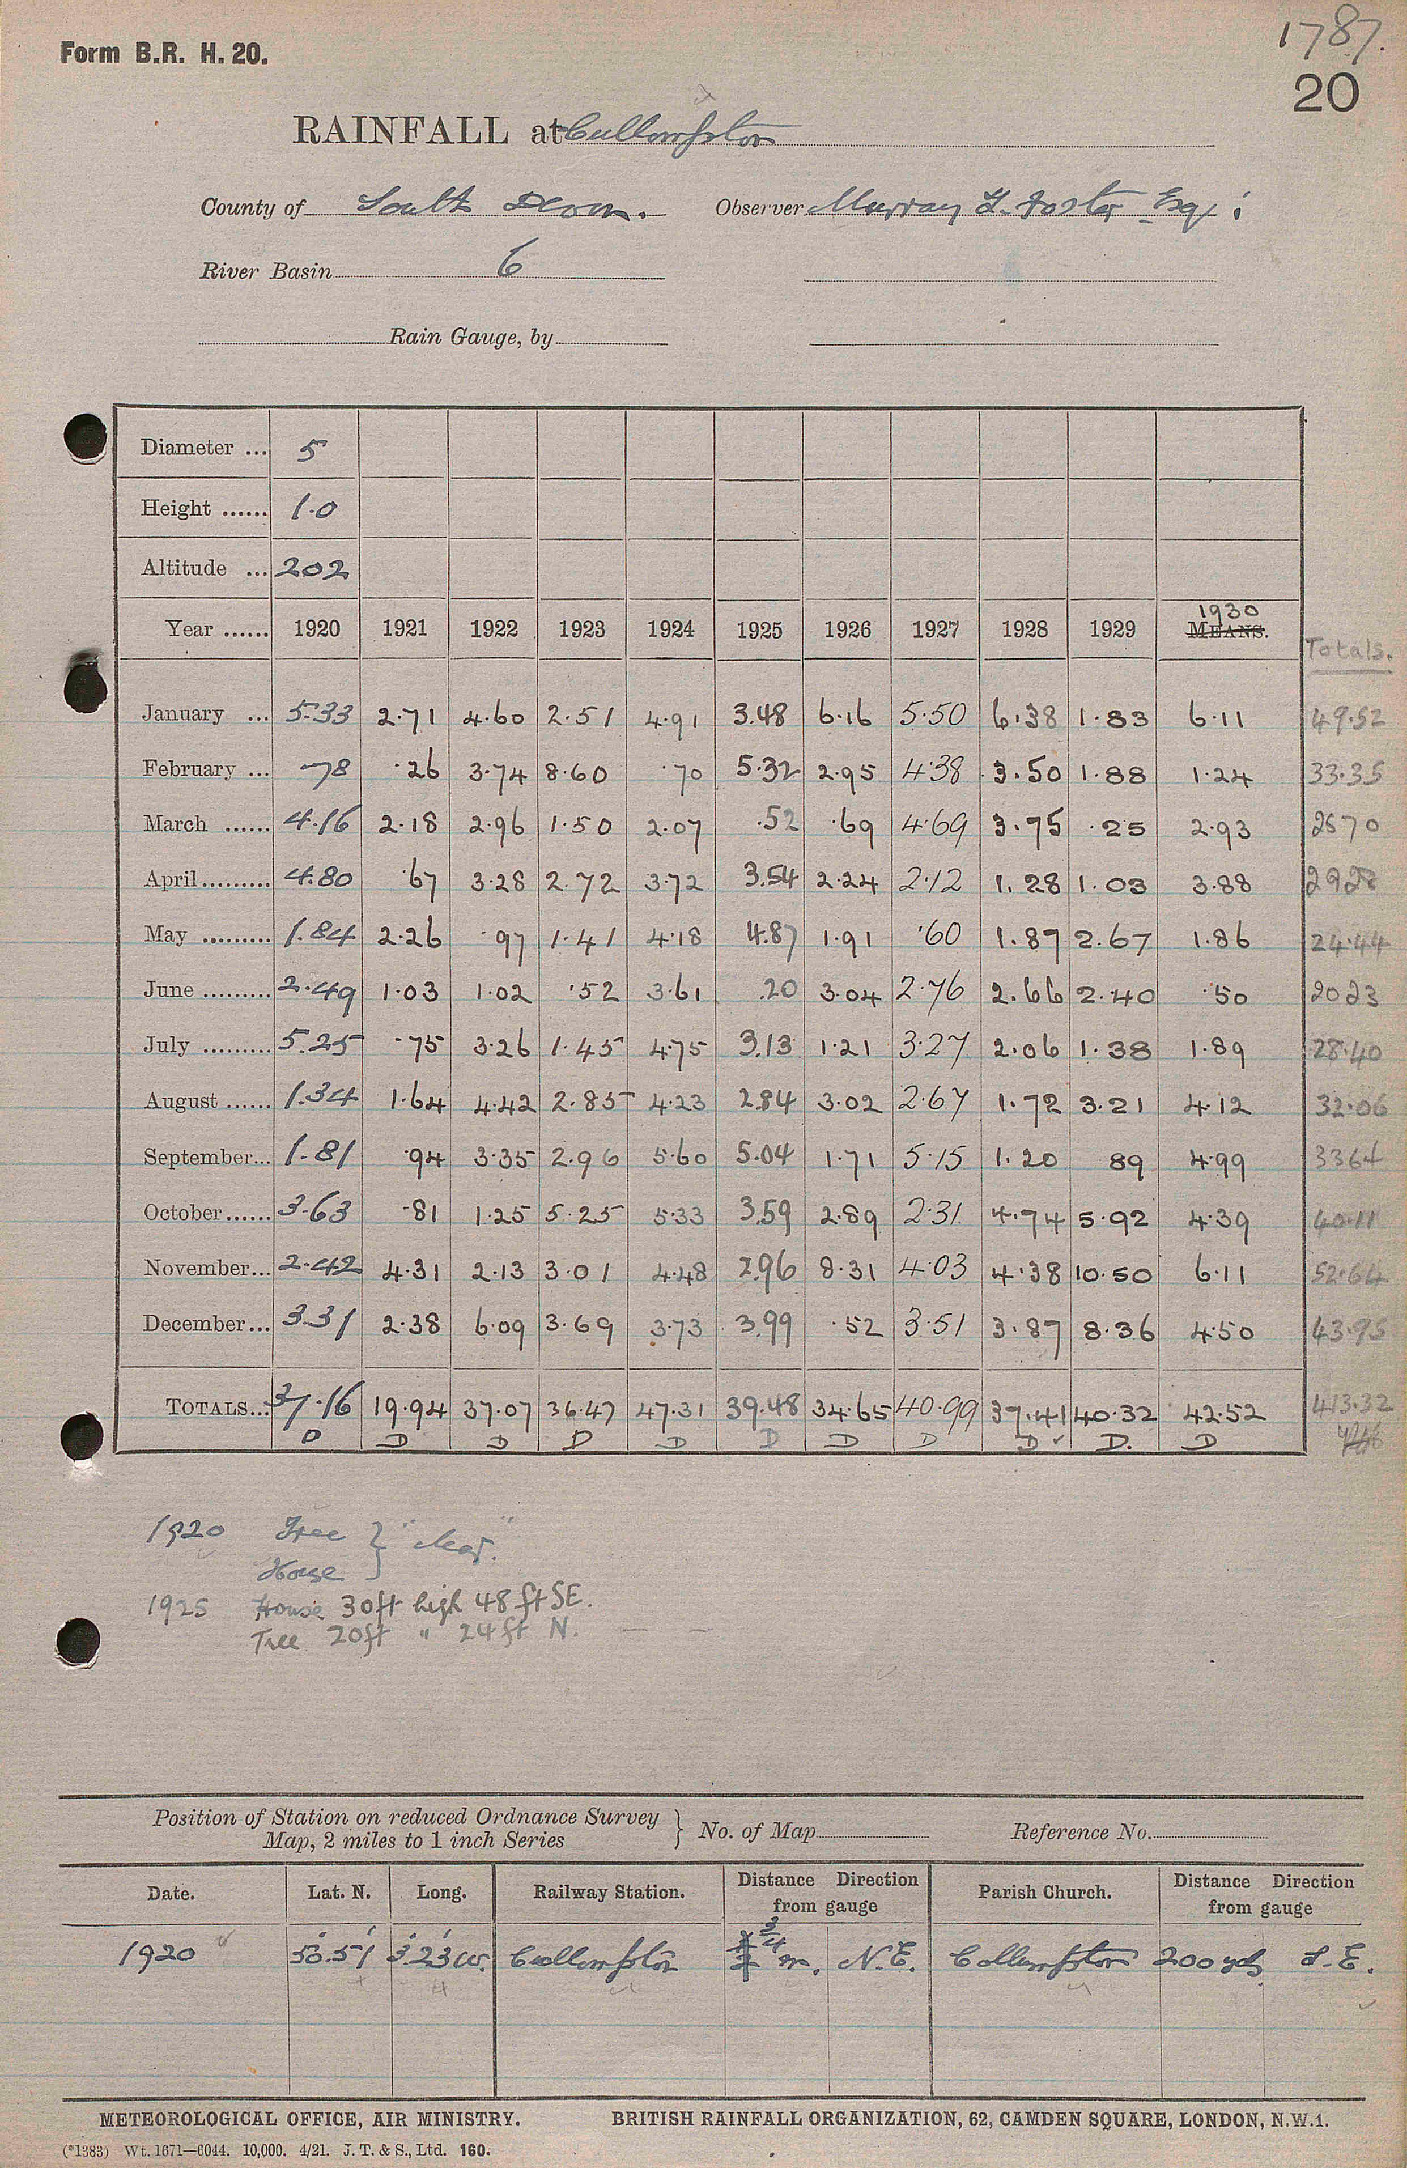 1787.
Form B.R. H. 20.
20
RAINFALL at Cullompton
County of South Devon. Observer Murray T. Foster Esq
River Basin 6
Rain Gauge, by
Diameter ... 5
Height ...... 1.0
Altitude ... 202
Year ...... 1920 1921 1922 1923 1924 1925 1926 1927 1928 1929 1930 MEANS. Totals.
January ... 5.33 2.71 4.60 2.51 4.91 3.48 6.16 5.50 6.38 1.83 6.11 49.52
February ... .78 .26 3.74 8.60 .70 5.32 2.95 4.38 3.50 1.88 1.24 33.35
March ...... 4.16 2.18 2.96 1.50 2.07 .52 .69 4.69 3.75 .25 2.93 2570
April ......... 4.80 .67 3.28 2.72 3.72 3.54 2.24 2.12 1.28 1.03 3.88 2928
May ......... 1.84 2.26 .97 1.41 4.18 4.87 1.91 .60 1.87 2.67 1.86 24.44
June ......... 2.49 1.03 1.02 .52 3.61 .20 3.04 2.76 2.66 2.40 .50 2023
July ......... 5.25 .75 3.26 1.45 4.75 3.13 1.21 3.27 2.06 1.38 1.89 28.40
August ...... 1.34 1.64 4.42 2.85 4.23 2.84 3.02 2.67 1.72 3.21 4.12 32.06
September... 1.81 .94 3.35 2.96 5.60 5.04 1.71 5.15 1.20 89 4.99 3364
October...... 3.63 .81 1.25 5.25 5.33 3.59 2.89 2.31 4.74 5.92 4.39 40.11
November... 2.42 4.31 2.13 3.01 4.48 2.96 8.31 4.03 4.38 10.50 6.11 52.64
December... 3.31 2.38 6.09 3.69 3.73 3.99 .52 3.51 3.87 8.36 4.50 43.95
TOTALS... 37.16 19.94 37.07 36.47 47.31 39.48 34.65 40.99 37.41 40.32 42.52 413.32
D D D D D D D D D D. D
1920 Tree } "clear."
House
1925 House 30ft high 48ft SE.
Tree 20ft " 24ft N.
Position of Station on reduced Ordnance Survey
Map, 2 miles to 1 inch Series } No. of Map Reference No.
Date. Lat. N. Long. Railway Station. Distance Direction from gauge Parish Church. Distance Direction from gauge
1920 50.51 3.23 W. Cullompton 3/4 m. N.E. Cullompton 200 yds S.E.
METEOROLOGICAL OFFICE, AIR MINISTRY. BRITISH RAINFALL ORGANIZATION, 62, CAMDEN SQUARE, LONDON, N.W.1.
(*1383) Wt. 1671—6044. 10,000. 4/21. J. T. & S., Ltd. 160.